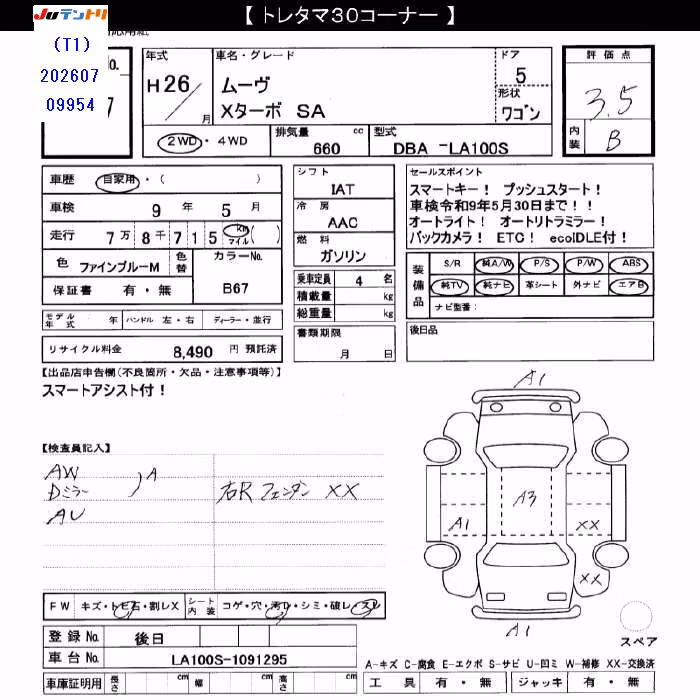 【 トレタマ30コーナー 】
JUテントリ
(T1)
202607
09954
No.
7
年式
H26/月
車名・グレード
ムーヴ
Xターボ SA
ドア
5
形状
ワゴン
評価点
3.5
内装
B
2WD・4WD
排気量 cc
660
型式
DBA -LA100S
車歴 自家用・( )
車検 9 年 5 月
走行 7万 8千 7 1 5 km マイル ( )
色 ファインブルーM
色替
カラーNo.
B67
保証書 有・無
モデル年式 年 ハンドル 左・右 ディーラー・並行
リサイクル料金 8,490 円 預託済
シフト
IAT
冷房
AAC
燃料
ガソリン
乗車定員 4 名
積載量 kg
総重量 kg
書類期限
月 日
セールスポイント
スマートキー! プッシュスタート!
車検令和9年5月30日まで!!
オートライト! オートリトラミラー!
バックカメラ! ETC! ecoIDLE付!
装備品
S/R 純A/W P/S P/W ABS
純TV 純ナビ 革シート 外ナビ エアB
ナビ型番:
後日品
【出品店申告欄(不良箇所・欠品・注意事項等)】
スマートアシスト付!
【検査員記入】
AW
Dミラー ) A
AU
右R フェンダー XX
A1
A3
A1
XX
XX
A1
スペア
FW キズ・トビ石・割レX
シート内装 コゲ・穴・汚レ・シミ・破レ・スレ
登録No. 後日
車台No. LA100S-1091295
車庫証明用 長さ cm 幅 cm 高さ cm
A-キズ C-腐食 E-エクボ S-サビ U-凹ミ W-補修 XX-交換済
工具 有・無 ジャッキ 有・無